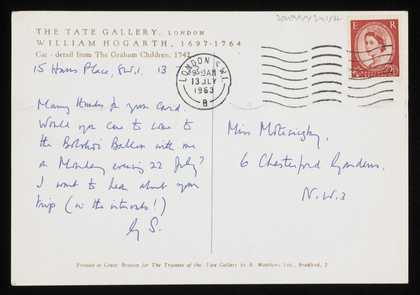 THE TATE GALLERY, LONDON
WILLIAM HOGARTH, 1697-1764
Cat - detail from The Graham Children, 1742
15 Hans Place, S.W.1. 13
Many thanks for your card.
Would you care to come to
the Bolshoi Ballet with me
on Monday evening 22 July?
I want to hear about your
trip (in the intervals!)
LONDON S.W.1.
9:30 AM
13 JLY
1963
B
E R
Miss Moteringhy
6 Chesterford Gardens,
N.W.3
Printed in Great Britain for The Trustees of the Tate Gallery by
Ltd., Bradford, 2